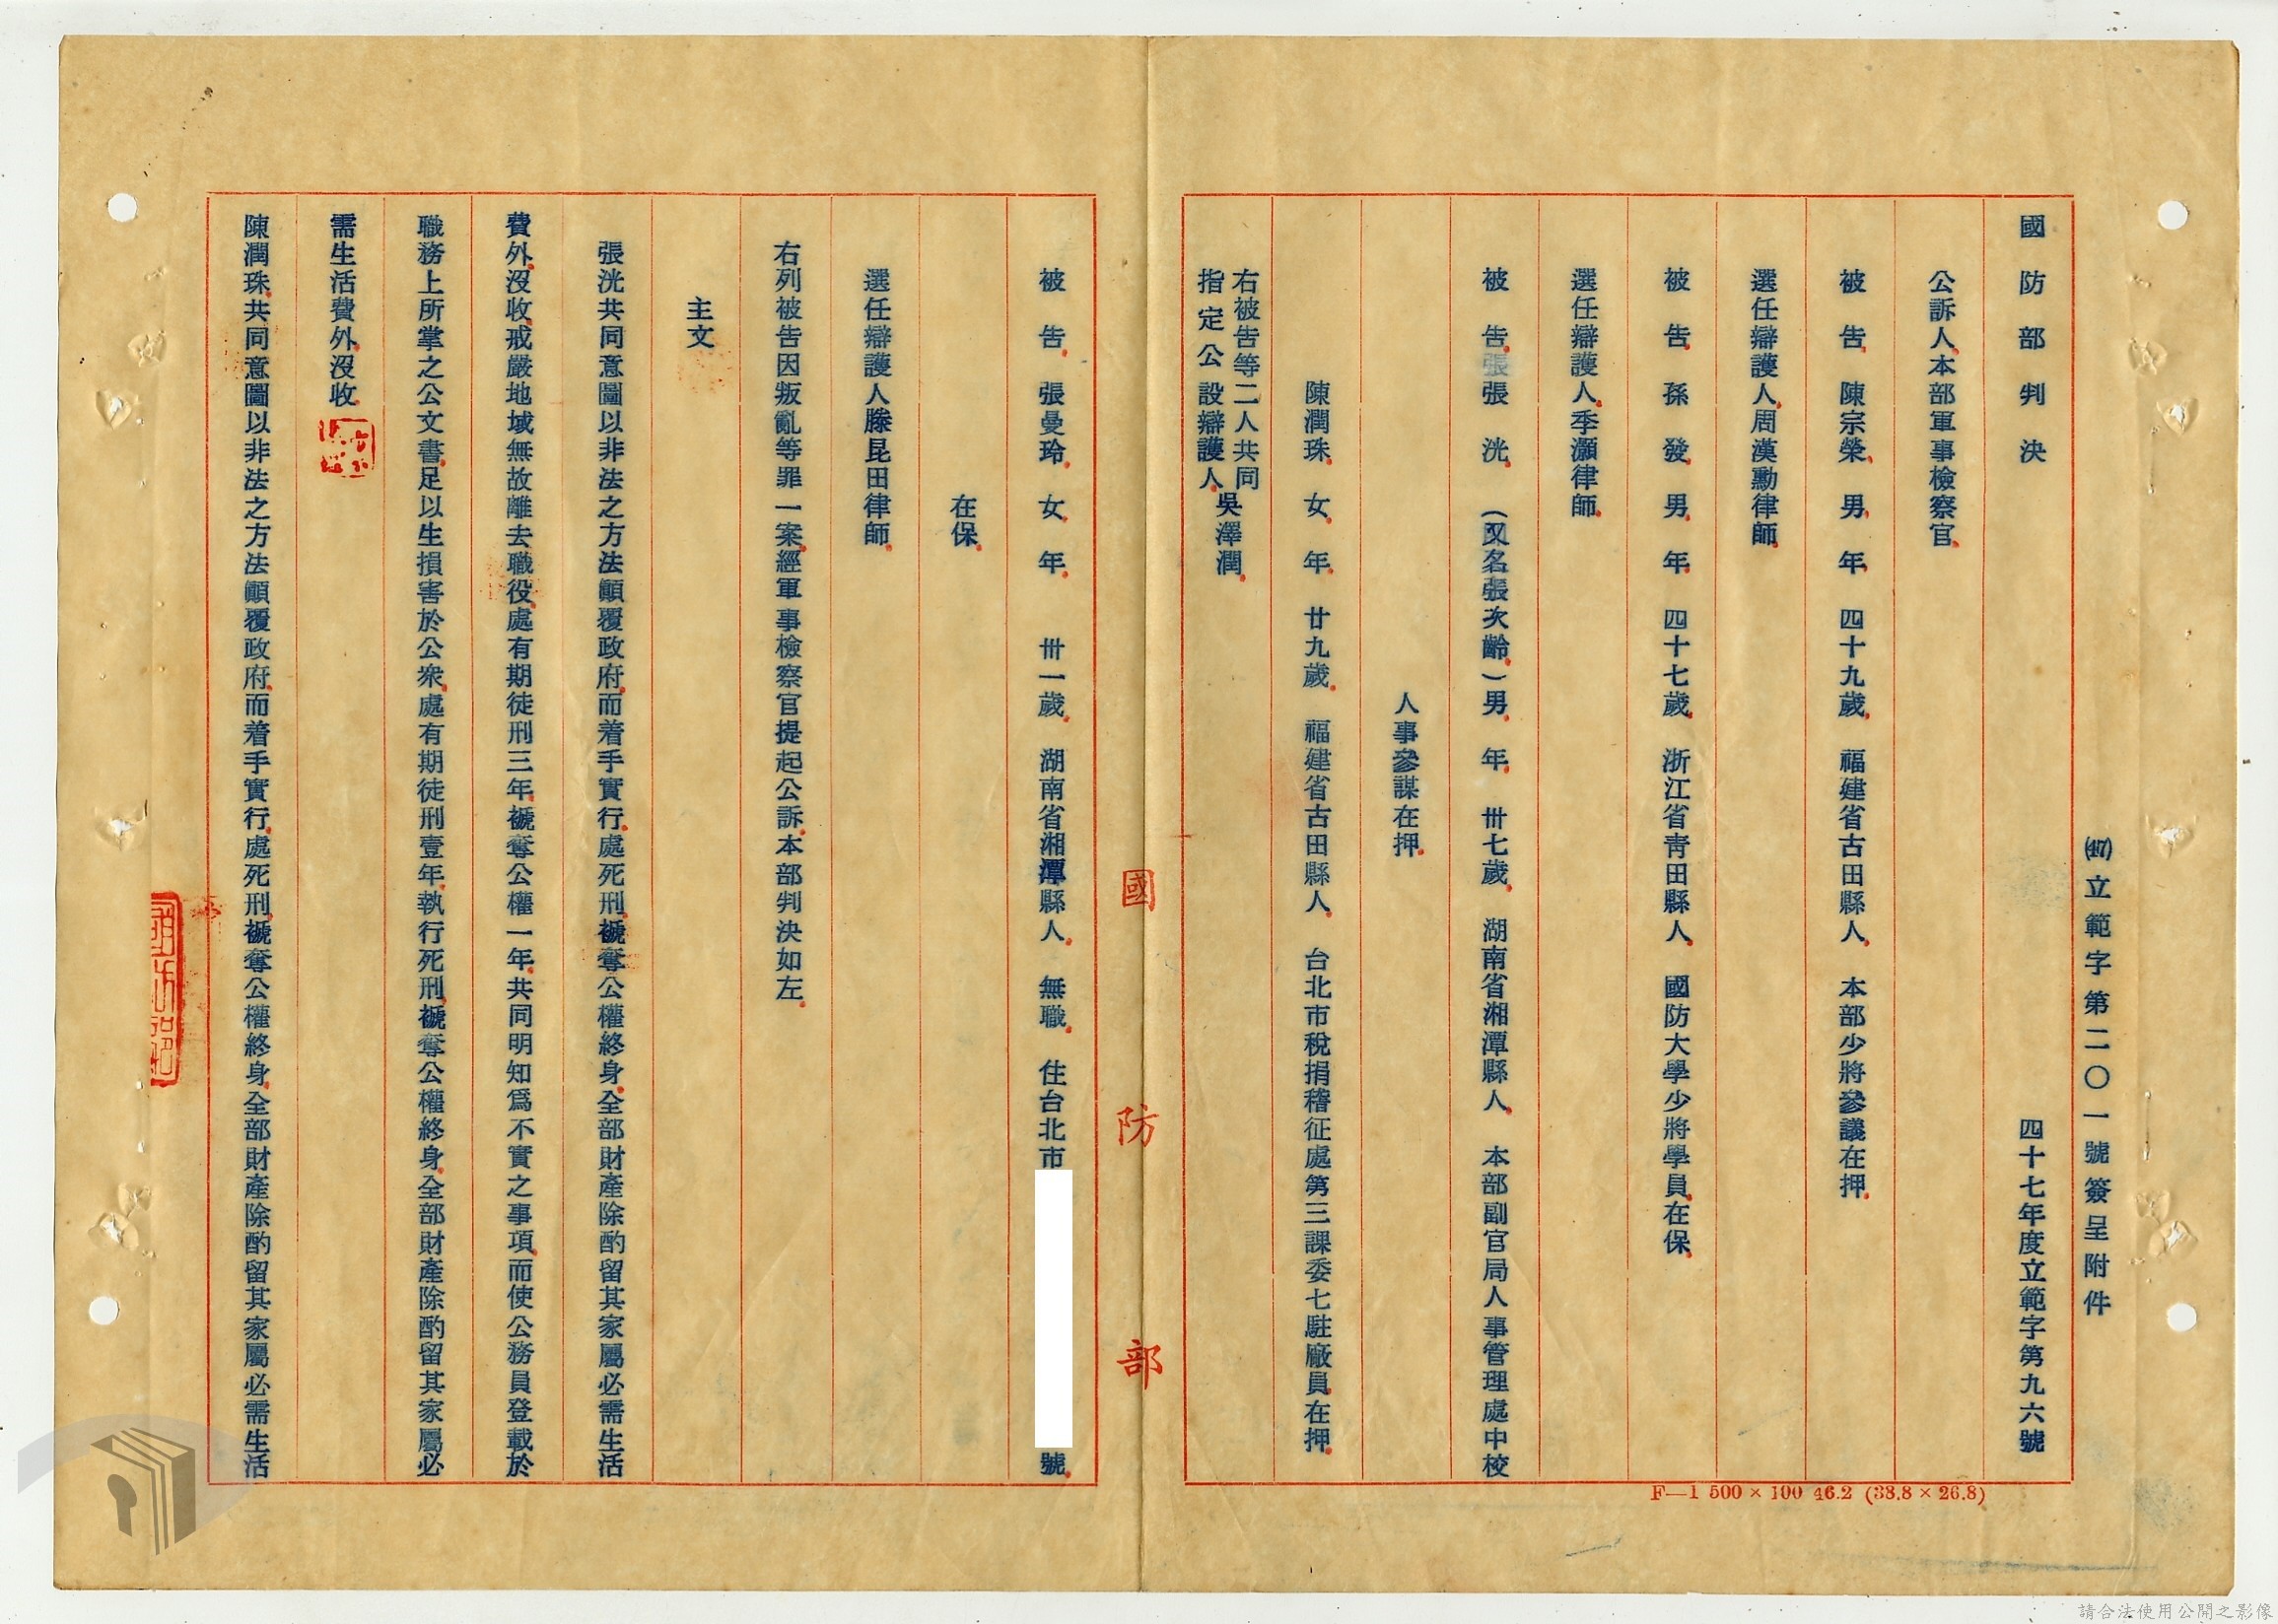 (47)立範字第二〇一號簽呈附件
國防部判決 四十七年度立範字第九六號
公訴人本部軍事檢察官
被告 陳宗榮 男 年 四十九歲 福建省古田縣人 本部少將參議在押
選任辯護人周漢勳律師
被告 孫發 男 年 四十七歲 浙江省靑田縣人 國防大學少將學員在保
選任辯護人季灝律師
被告 張洸 (又名張次齡)男 年 卅七歲 湖南省湘潭縣人 本部副官局人事管理處中校
人事參謀在押
陳潤珠 女 年 廿九歲 福建省古田縣人 台北市稅捐稽征處第三課委七駐廠員在押
右被告等二人共同
指定公設辯護人 吳澤潤
國防部
被告 張曼玲 女 年 卅一歲 湖南省湘潭縣人 無職 住台北市 號
在保
選任辯護人滕昆田律師
右列被告因叛亂等罪一案經軍事檢察官提起公訴本部判決如左
主文
張洸共同意圖以非法之方法顚覆政府而着手實行處死刑褫奪公權終身全部財產除酌留其家屬必需生活
費外沒收戒嚴地域無故離去職役處有期徒刑三年褫奪公權一年共同明知爲不實之事項而使公務員登載於
職務上所掌之公文書足以生損害於公衆處有期徒刑壹年執行死刑褫奪公權終身全部財產除酌留其家屬必
需生活費外沒收
陳潤珠共同意圖以非法之方法顚覆政府而着手實行處死刑褫奪公權終身全部財產除酌留其家屬必需生活
F—1 500×100 46.2 (38.8×26.8)
請合法使用公開之影像